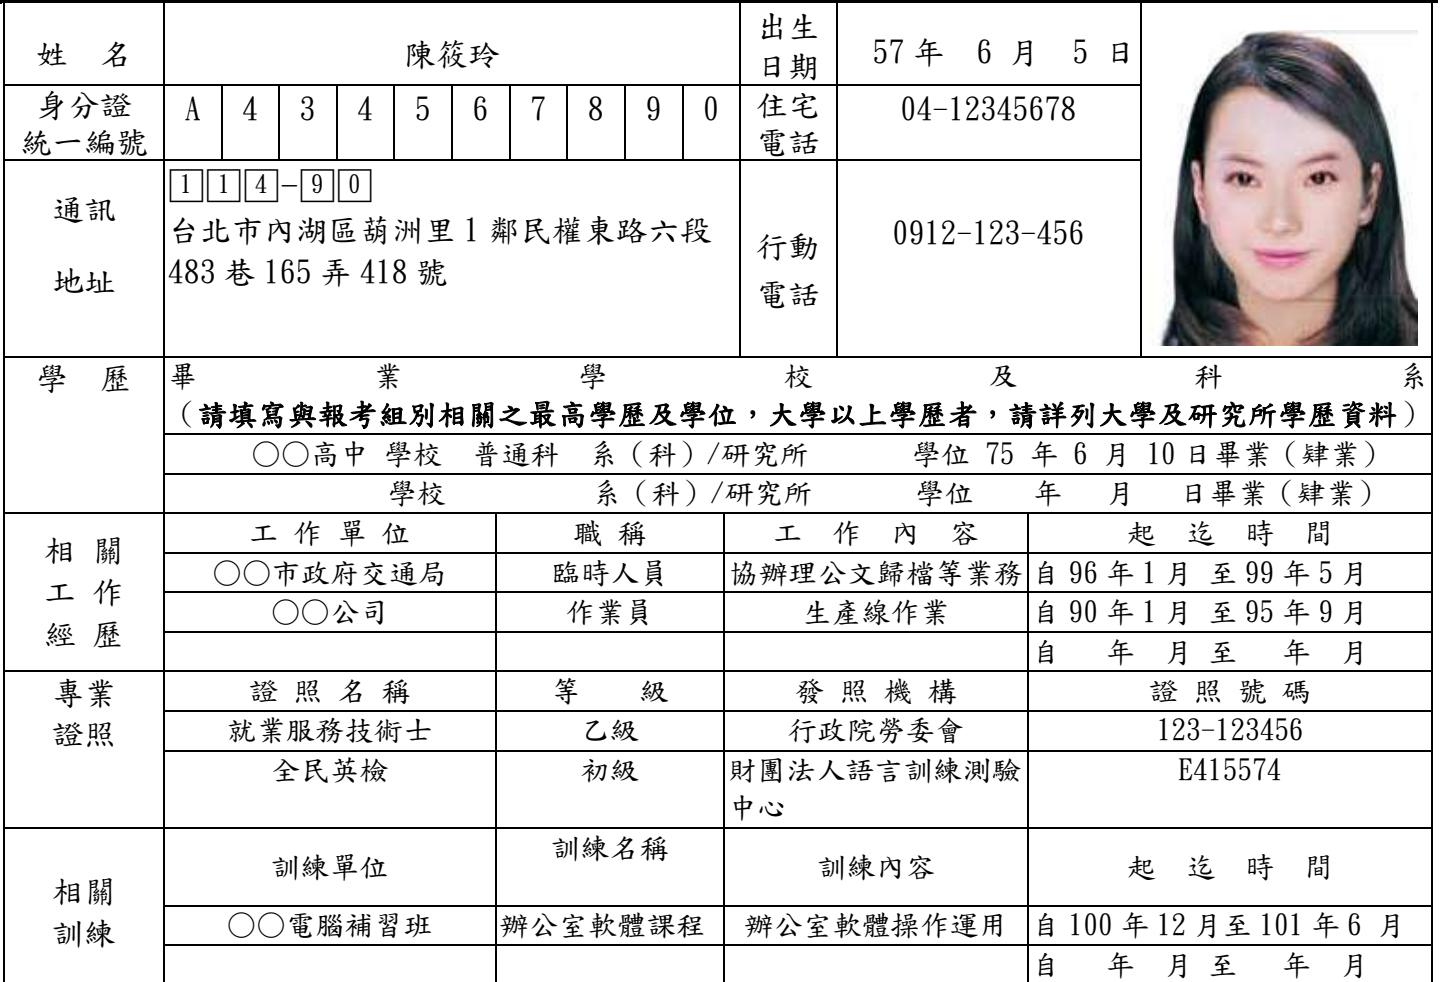 姓 名 陳筱玲 出生日期 57 年 6 月 5 日
身分證統一編號 A 4 3 4 5 6 7 8 9 0 住宅電話 04-12345678
通訊地址 1 1 4-9 0
台北市內湖區葫洲里 1 鄰民權東路六段
483 巷 165 弄 418 號
行動電話 0912-123-456
學 歷 畢 業 學 校 及 科 系
（請填寫與報考組別相關之最高學歷及學位，大學以上學歷者，請詳列大學及研究所學歷資料）
○○高中 學校 普通科 系（科）/研究所 學位 75 年 6 月 10 日畢業（肄業）
學校 系（科）/研究所 學位 年 月 日畢業（肄業）
相 關 工 作 經 歷 工 作 單 位 職 稱 工 作 內 容 起 迄 時 間
○○市政府交通局 臨時人員 協辦理公文歸檔等業務 自 96 年 1 月 至 99 年 5 月
○○公司 作業員 生產線作業 自 90 年 1 月 至 95 年 9 月
自 年 月 至 年 月
專業證照 證 照 名 稱 等 級 發 照 機 構 證 照 號 碼
就業服務技術士 乙級 行政院勞委會 123-123456
全民英檢 初級 財團法人語言訓練測驗中心 E415574
相關訓練 訓練單位 訓練名稱 訓練內容 起 迄 時 間
○○電腦補習班 辦公室軟體課程 辦公室軟體操作運用 自 100 年 12 月至 101 年 6 月
自 年 月 至 年 月